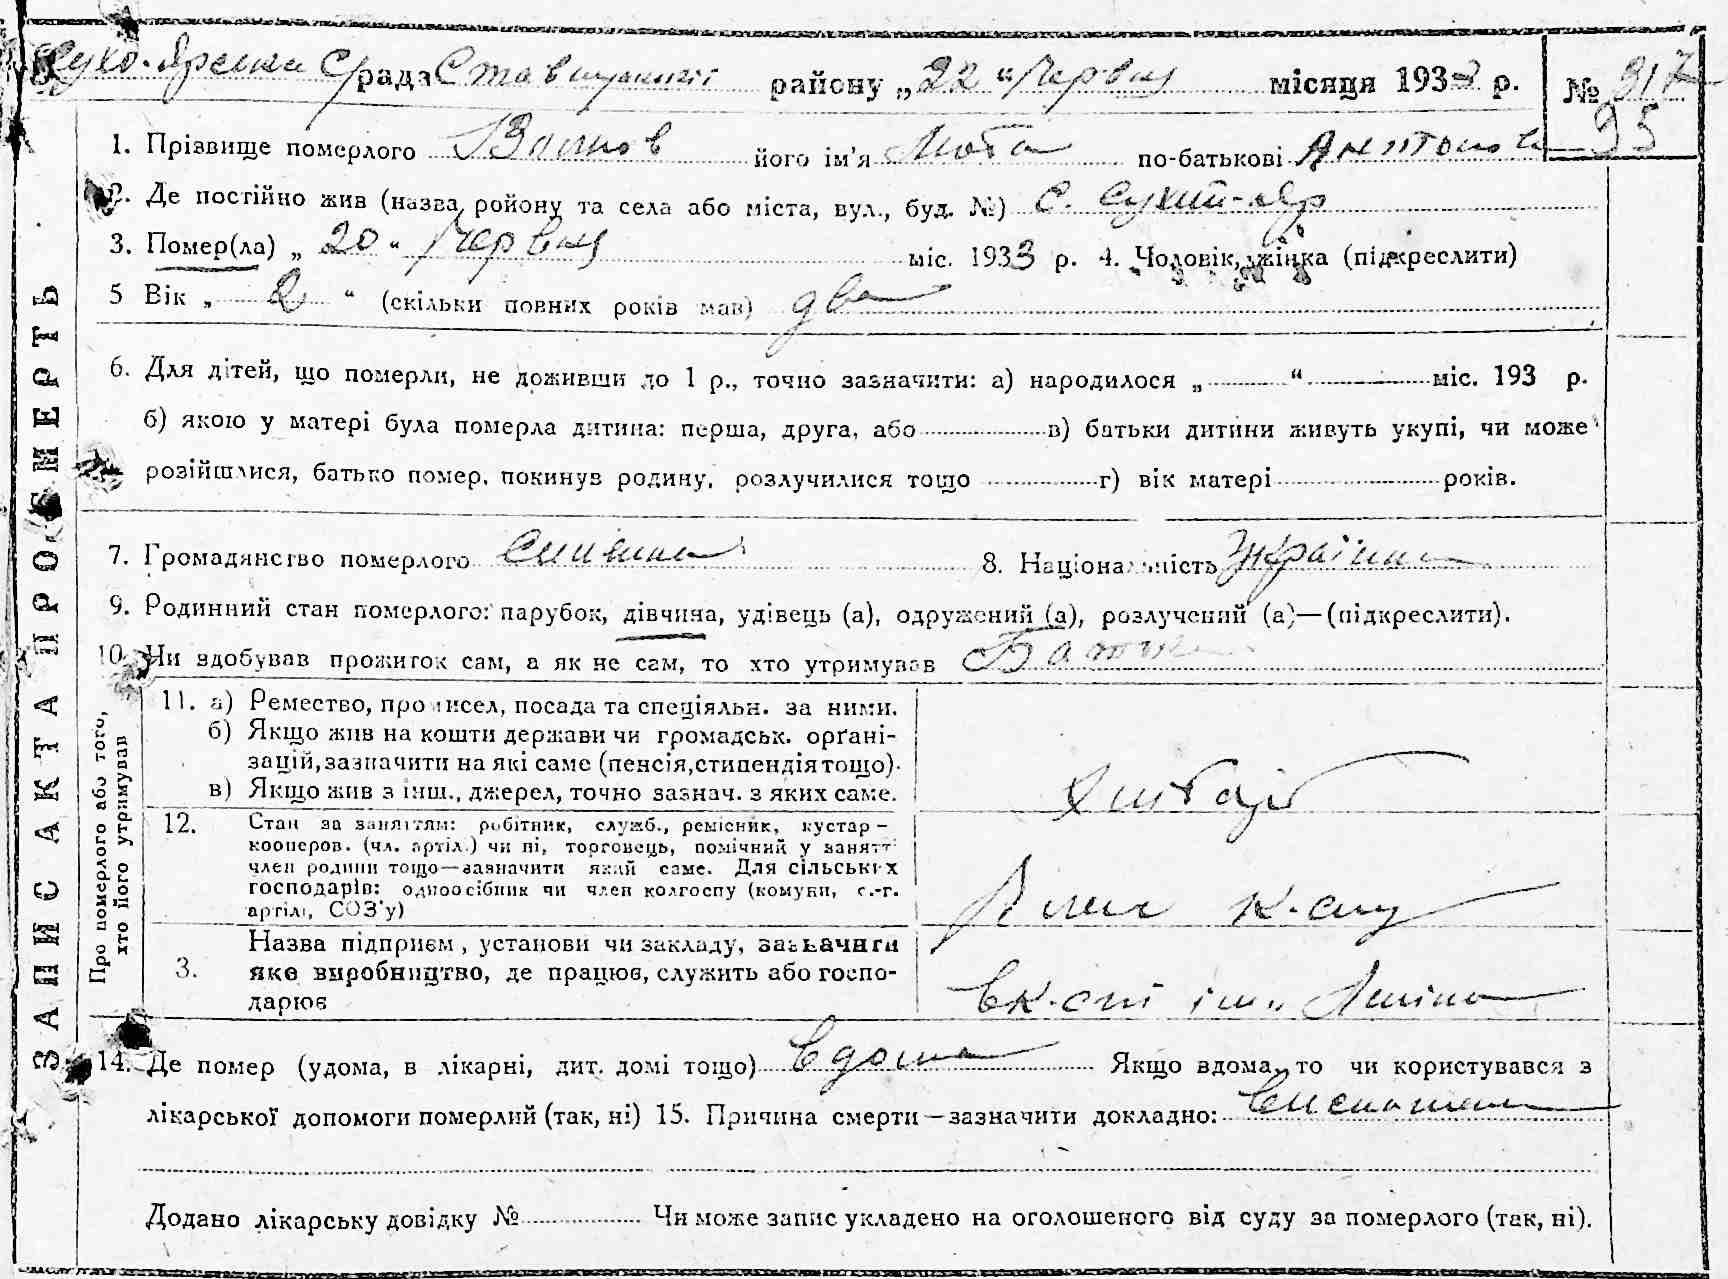 Сухо-Ярська С/рада Ставищанськ району „22“ Червня місяця 1933 р. № 317
95
1. Прізвище померлого його ім'я Мотя по-батькові Антонова
2. Де постійно жив (назва ройону та села або міста, вул., буд. №) с. Сухий-яр
3. Помер(ла) „ 20 “ Червня міс. 1933 р. 4. Чоловік, жінка (підкреслити)
5 Вік „ 2 “ (скільки повних років мав) два
6. Для дітей, що померли, не доживши до 1 р., точно зазначити: а) народилося „ “ міс. 193 р.
б) якою у матері була померла дитина: перша, друга, або в) батьки дитини живуть укупі, чи може
розійшлися, батько помер, покинув родину, розлучилися тощо г) вік матері років.
7. Громадянство померлого 8. Національність Україн
9. Родинний стан померлого: парубок, дівчина, удівець (а), одружений (а), розлучений (а)—(підкреслити).
10. Чи здобував прожиток сам, а як не сам, то хто утримував Батьки
ЗАПИС АКТА ПРО СМЕРТЬ
Про померлого або того,
хто його утримував
11. а) Ремество, промисел, посада та спеціяльн. за ними.
б) Якщо жив на кошти держави чи громадськ. орґані-
зацій, зазначити на які саме (пенсія, стипендія тощо).
в) Якщо жив з інш., джерел, точно зазнач. з яких саме.
Хлібороб
12. Стан за заняттям: робітник, служб., ремісник, кустар—
кооперов. (чл. артіл.) чи ні, торговець, помічний у занятті
член родини тощо—зазначити який саме. Для сільських
господарів: одноосібник чи член колгоспу (комуни, с.-г.
артілі, СОЗ'у)
Член к-спу
3. Назва підприєм, установи чи закладу, зазначити
яке виробництво, де працює, служить або госпо-
дарює
в к-спі ім. Леніна
14. Де помер (удома, в лікарні, дит. домі тощо) вдома Якщо вдома, то чи користувався з
лікарської допомоги померлий (так, ні) 15. Причина смерти—зазначити докладно:
Додано лікарську довідку № Чи може запис укладено на оголошеного від суду за померлого (так, ні).